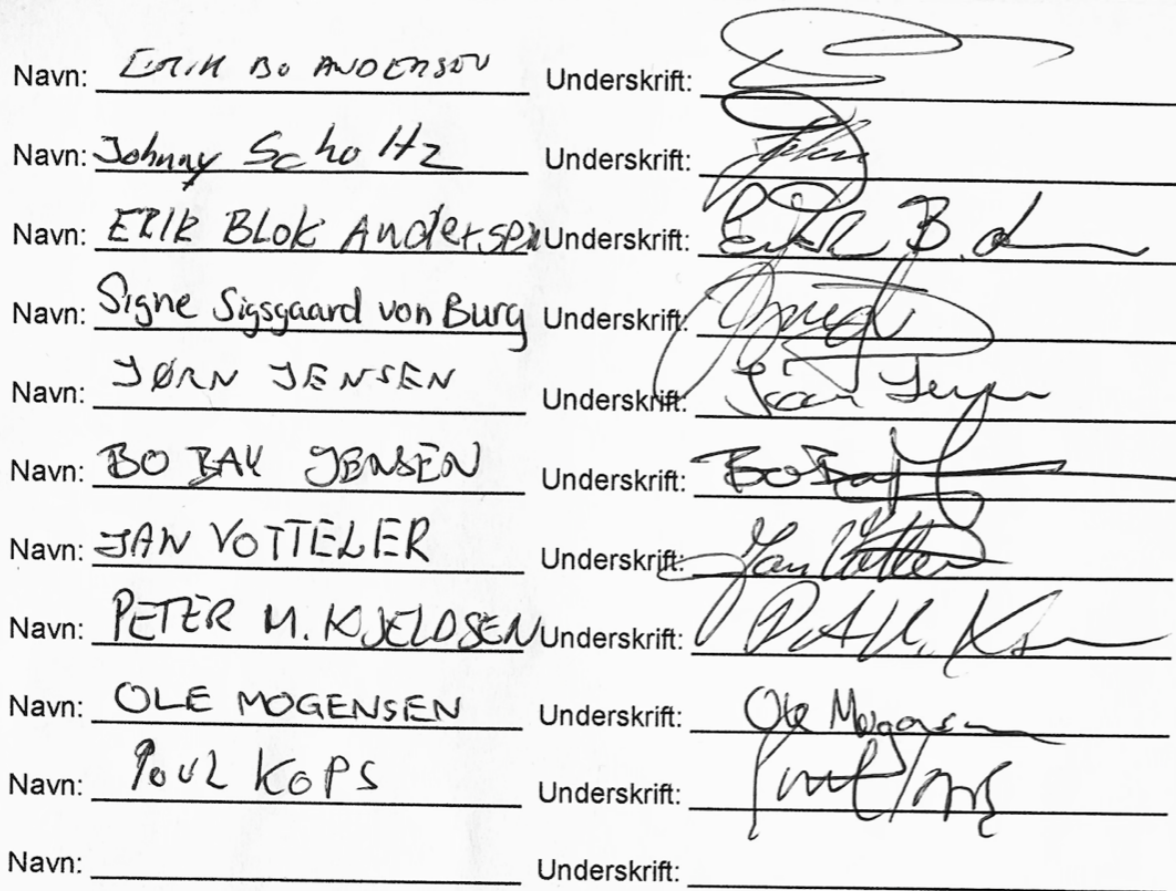 Navn: ERIK BO ANDERSEN Underskrift:
Navn: Johnny Scholtz Underskrift:
Navn: ERIK BLOK Andersen Underskrift: Erik B. A
Navn: Signe Sigsgaard von Burg Underskrift:
Navn: JØRN JENSEN Underskrift:
Navn: BO BAK JENSEN Underskrift: Bo Bak
Navn: JAN VOTTELER Underskrift: Jan Votteler
Navn: PETER M. KJELDSEN Underskrift:
Navn: OLE MOGENSEN Underskrift: Ole Mogensen
Navn: Poul KOPS Underskrift:
Navn: Underskrift: